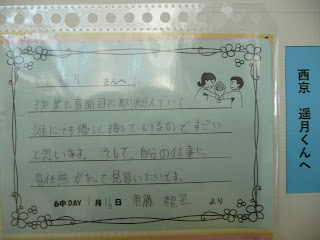 さんへ
授業に真面目に取り組んでいて
誰にでも優しく接しているのですごい
と思います。そして、自分の仕事に
責任感があって見習いたいです。
6中DAY 1月16日 齊藤 龍星 より
西京 遥月くんへ